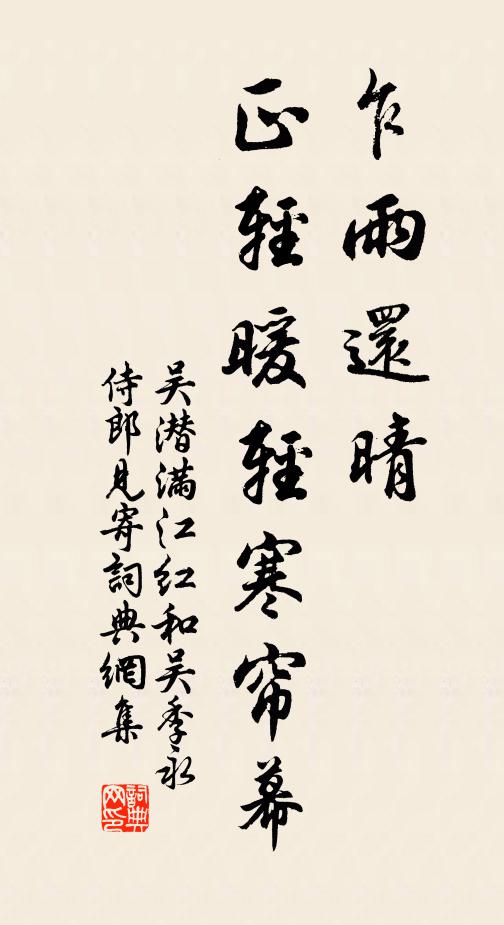 乍雨還晴
正輕暖輕寒帘幕
吴潜滿江红和吴季永
侍郎見寄詞典網集
詞典
网印